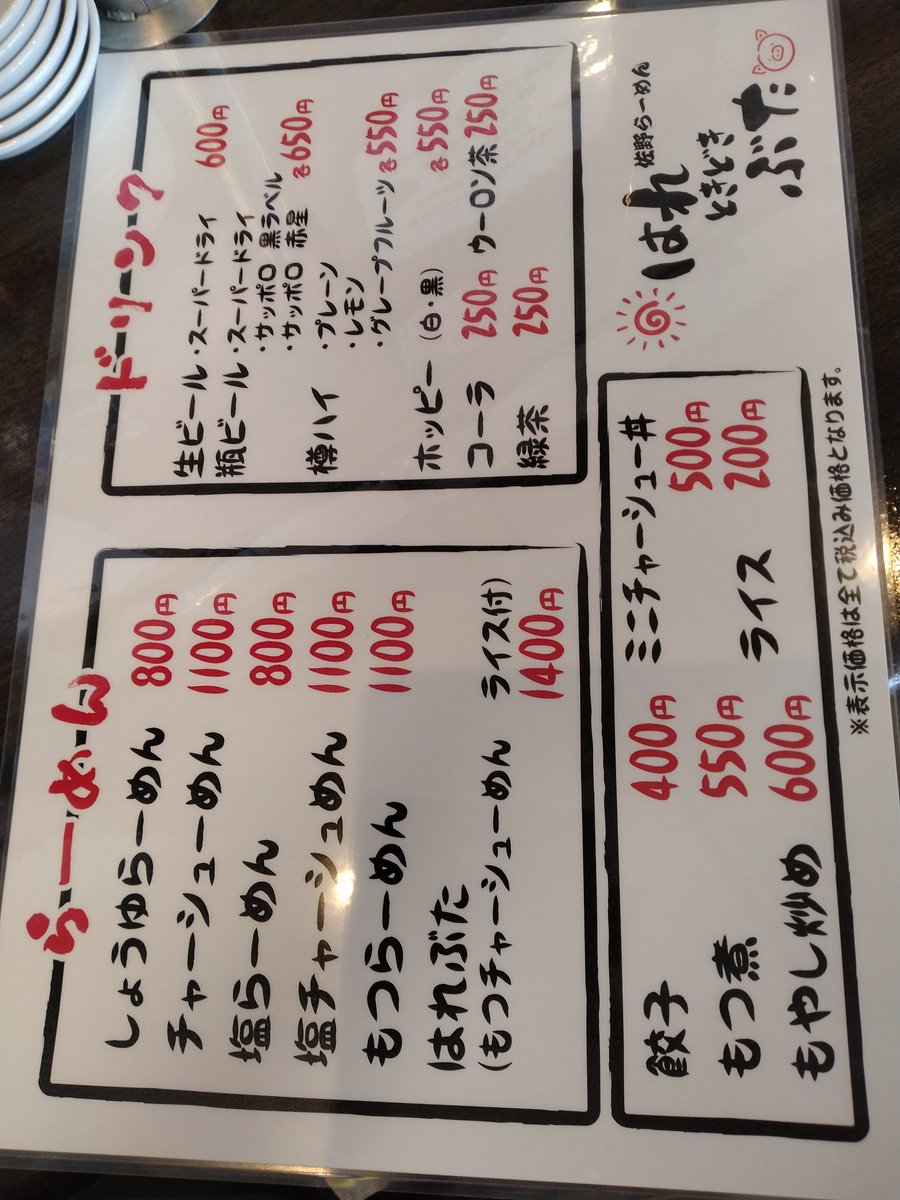 らーめん
しょうゆらーめん 800円
チャーシューめん 1100円
塩らーめん 800円
塩チャーシュめん 1100円
もつらーめん 1100円
はれぶた
(もつチャーシューめん ライス付) 1400円
ドリンク
生ビール・スーパードライ 600円
瓶ビール・スーパードライ
・サッポロ 黒ラベル
・サッポロ 赤星 各650円
樽ハイ ・プレーン
・レモン
・グレープフルーツ 各550円
ホッピー (白・黒) 各550円
コーラ 250円 ウーロン茶 250円
緑茶 250円
餃子 400円 ミニチャーシュー丼 500円
もつ煮 550円
もやし炒め 600円 ライス 200円
佐野らーめん
はれ
ときどき
ぶた
※表示価格は全て税込み価格となります。